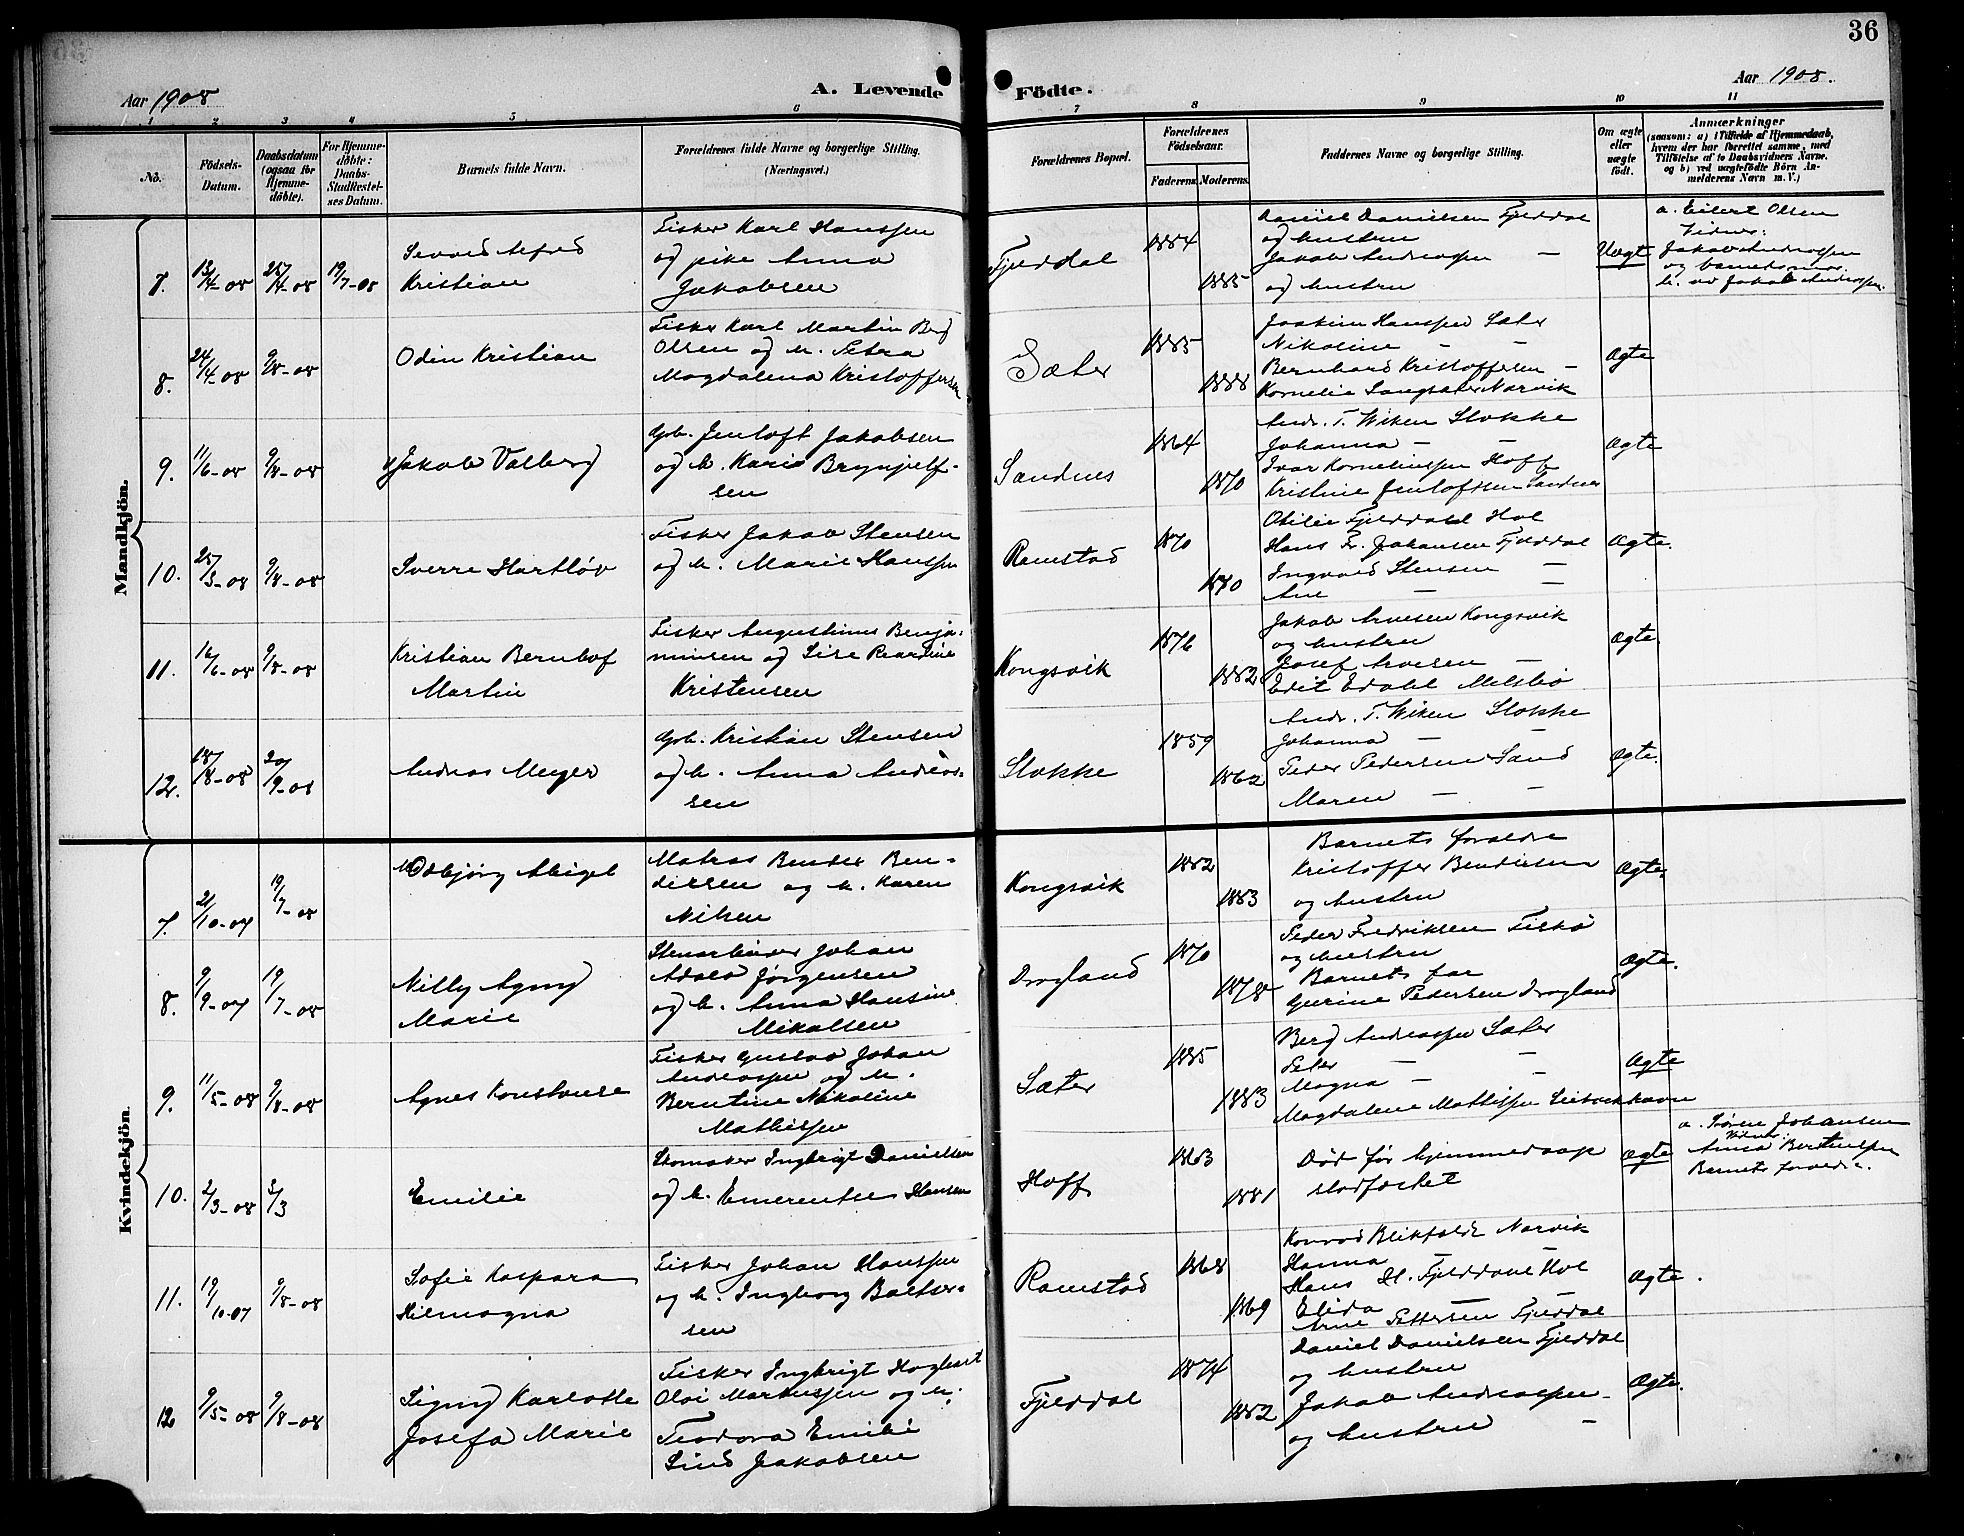 36
Aar 1908
A. Levende
Födte.
Aar 1908.
1 2 3 4 5 6 7 8 9 10 11
No.
Födsels-
Datum.
Daabsdatum
(ogsaa for
Hjemme-
döbte).
For Hjemme-
döbte:
Daabs-
Stadfæstel-
ses Datum.
Barnets fulde Navn.
Forældrenes fulde Navne og borgerlige Stilling.
(Næringsvei.)
Forældrenes Bopæl.
Forældrenes
Födselsaar.
Faderens.
Moderens.
Faddernes Navne og borgerlige Stilling.
Om ægte
eller
uægte
födt.
Anmærkninger
(saasom: a) i Tilfælde af Hjemmedaab,
hvem der har forrettet samme, med
Tilföielse af to Daabsvidners Navne.
og b) ved uægtefödte Börn An-
melderens Navn m. V.)
Mandkjön.
7.
13/4-08
25/4-08
19/7-08
Alfred
Kristian
Fisker Karl Hanssen
og pike Anna
Jakobsen
Fjelddal
1884
1885
Daniel Danielsen Fjelddal
og hustru
Jakob Andreassen —
og hustru
Uægt
a. Eilert Olsen
Vidner:
Jakob Andreassen
og barnets mor.
b. av Jakob Andreassen.
8.
24/4-08
9/8-08
Odin Kristian
Fisker Karl Martin Berg
Olsen og h. Petra
Magdalena Kristoffersen
Sæter
1885
1888
Joakim Hanssen Sæter
Nikoline — —
Bernhard Kristoffersen —
Kornelie Langsæter Narvik
Ægte
9.
11/6-08
9/8-08
Jakob Valberg
Gbr. Jentoft Jakobsen
og h. Karie Brynjelf-
sen
Sandnes
1864
1870
Andr. T. Wiken Stokke
Johanna — —
Ivar Korneliussen Hoff
Kristine Jentoftsen Sandnes
Ægte
10.
25/5-08
9/8-08
Sverre Hartløv
Fisker Jakob Stensen
og h. Marie Hanssen
Ramstad
1870
1870
Otilie Fjelddal Hol
Hans Fr. Johansen Fjelddal
Ingvald Stensen —
Ane — —
Ægte.
11.
16/6-08
9/8-08
Kristian Bernhof
Martin
Fisker Augustinus Benja-
minsen og Lise
Kristensen
Kongsvik
1876
1882
Jakob Arnesen Kongsvik
og hustru
Josef Arnesen —
Edit Edahl Melsbø
Ægte.
12.
18/8-08
20/9-08
Andreas Meyer
Gbr. Kristian Stensen
og h. Anna Andreas-
sen
Stokke
1859
1862
Andr. T. Wiken Stokke
Johanna — —
Peder Pedersen Sand
Maren — —
Ægte.
Kvindekjön.
7.
21/10-07
19/7-08
Odbjörg Abigel
Matros Bender Ben-
dicsen og h. Karen
Nilsen
Kongsvik
1882
1883
Barnets forældre
Kristoffer Bendiksen
og hustru
Ægte.
8.
9/9-07
19/7-08
Nilly Agny
Marie
Stenarbeider Johan
Adolo Jørgensen
og h. Anna Hansine
Mikalsen
Drogland
1870
1878
Peder Fredriksen Fiskø
og hustru
Barnets far
Gurine Pedersen Drogland
Ægte.
9.
11/5-08
9/8-08
Agnes Konstanse
Fisker Gustav Johan
Andreassen og h.
Berntine Nikoline
Mathissen
Sæter
1885
1883
Berg Andreassen Sæter
Peter — —
Magna — —
Magdalene Mathissen
Ægte
10.
2/3-08
2/3
Emilie
Skomaker Ingbrigt Danielsen
og h. Emerentse Hansen
Hoff
1863
1881
Død før hjemmedaap
stadfæstet
Ægte
a. Søren Johansen
Vidner:
Anna Berntsen
Barnets forældre.
11.
19/10-07
9/8-08
Sofie Kaspara
Hilmagna
Fisker Johan Hanssen
og h. Ingborg Baltser-
sen
Ramstad
1868
1869
Konrad Blikfeldt Narvik
Hanna — —
Hans H. Fjelddal Hol
Elida — —
Arne Pettersen Fjelddal
Ægte.
12
9/5-08
9/8-08
Signy Karlotte
Josefa Marie
Fisker Ingbrigt Hagbart
Olai Markussen og h.
Teodora Emilie
Lind Jakobsen
Fjelddal
1874
1882
Daniel Danielsen Fjelddal
og hustru
Jakob Andreassen —
og hustru —
Ægte.